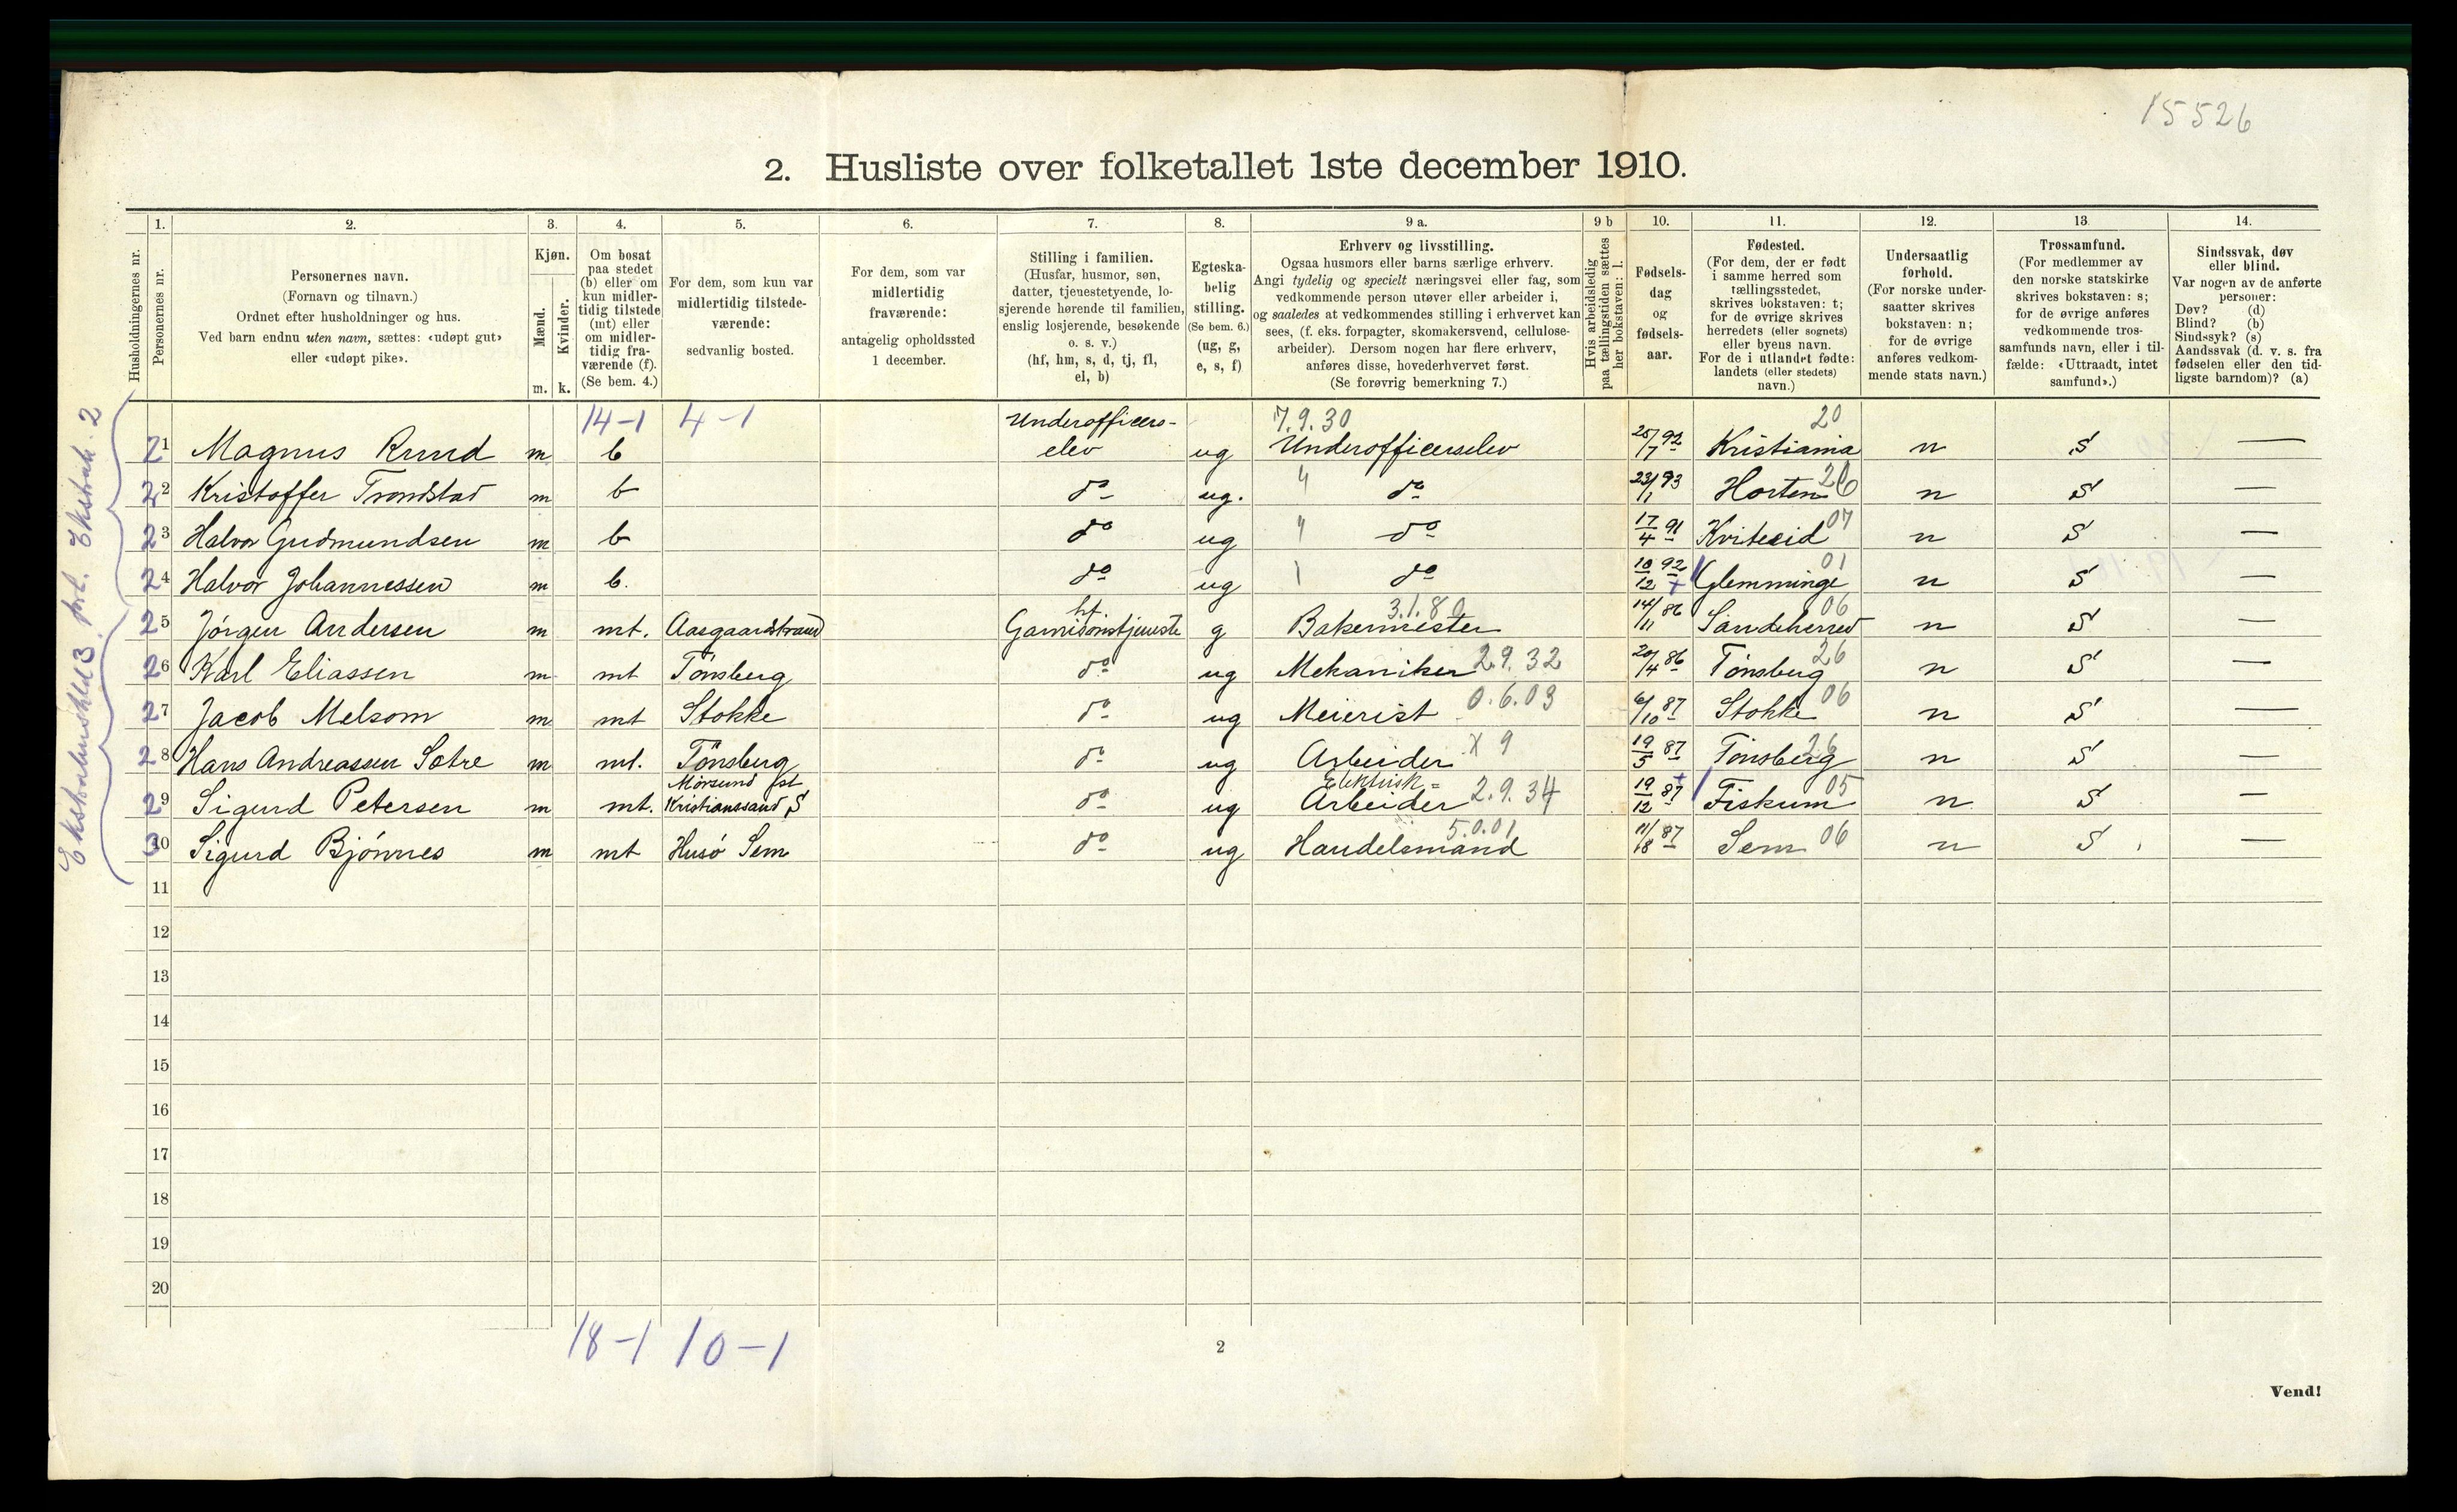 15526
2. Husliste over folketallet 1ste december 1910.
Husholdningernes nr.
1. Personernes nr.
2. Personernes navn.
(Fornavn og tilnavn.)
Ordnet efter husholdninger og hus.
Ved barn endnu uten navn, sættes: «udøpt gut»
eller «udøpt pike».
3. Kjøn.
Mænd. Kvinder.
m. k.
4. Om bosat
paa stedet
(b) eller om
kun midler-
tidig tilstede
(mt) eller
om midler-
tidig fra-
værende (f).
(Se bem. 4.)
5. For dem, som kun var
midlertidig tilstede-
værende:
sedvanlig bosted.
6. For dem, som var
midlertidig
fraværende:
antagelig opholdssted
1 december.
7. Stilling i familien.
(Husfar, husmor, søn,
datter, tjenestetyende, lo-
sjerende hørende til familien,
enslig losjerende, besøkende
o. s. v.)
(hf, hm, s, d, tj, fl,
el, b)
8. Egteska-
belig
stilling.
(Se bem. 6.)
(ug, g,
e, s, f)
9 a. Erhverv og livsstilling.
Ogsaa husmors eller barns særlige erhverv.
Angi tydelig og specielt næringsvei eller fag, som
vedkommende person utøver eller arbeider i,
og saaledes at vedkommendes stilling i erhvervet kan
sees, (f. eks. forpagter, skomakersvend, cellulose-
arbeider). Dersom nogen har flere erhverv,
anføres disse, hovederhvervet først.
(Se forøvrig bemerkning 7.)
9 b Hvis arbeidsledig
paa tællingstiden sættes
her bokstaven: l.
10. Fødsels-
dag
og
fødsels-
aar.
11. Fødested.
(For dem, der er født
i samme herred som
tællingsstedet,
skrives bokstaven: t;
for de øvrige skrives
herredets (eller sognets)
eller byens navn.
For de i utlandet fødte:
landets (eller stedets)
navn.)
12. Undersaatlig
forhold.
(For norske under-
saatter skrives
bokstaven: n;
for de øvrige
anføres vedkom-
mende stats navn.)
13. Trossamfund.
(For medlemmer av
den norske statskirke
skrives bokstaven: s;
for de øvrige anføres
vedkommende tros-
samfunds navn, eller i til-
fælde: «Uttraadt, intet
samfund».)
14. Sindssvak, døv
eller blind.
Var nogen av de anførte
personer:
Døv? (d)
Blind? (b)
Sindssyk? (s)
Aandssvak (d. v. s. fra
fødselen eller den tid-
ligste barndom)? (a)
14-1 4-1 Underofficers- 7.9.30 20
21 Magnus Ruud m b elev ug Underofficerselev 25/7 92 Kristiania n S —
22 Kristoffer Trondstad m b do ug. " do 23/1 93 Horten 26 n S —
23 Halvor Gudmundsen m b do ug " do 17/4 91 Kviteseid 07 n S —
24 Halvor Johannessen m b. do ug do 10/12 92 + Glemminge 01 n S —
25 Jörgen Andersen m mt. Aasgaardstrand hf. Garnisonstjeneste g Bakermester 3.1.80 14/11 86 Sandeherred 06 n S —
26 Karl Eliassen m mt Tönsberg do ug Mekaniker 2.9.32 20/4 86 Tönsberg 26 n S —
27 Jacob Melsom m mt Stokke do ug Meierist 0.6.03 6/10 87 Stokke 06 n S —
28 Hans Andreassen Sætre m mt. Tönsberg do ug Arbeider X 9 19/5 87 Tönsberg 26 n S —
29 Sigurd Petersen m mt. Kristianssand S do ug Elektrisk = Arbeider 2.9.34 19/12 87 + Fiskum 05 n S —
30 Sigurd Bjönnes m mt Husö Sem do ug Handelsmand 5.0.01 11/8 87 Sem 06 n S —
11
12
13
14
15
16
17
18
19
20
18-1 10-1
2
Vend!